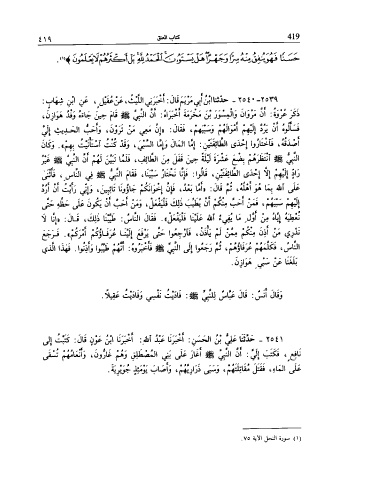 419 كتاب العتق ٤١٩
حَسَنًا فَهُوَ يُنفِقُ مِنْهُ سِرًّا وَجَهْرًا هَلْ يَسْتَوُونَ الْحَمْدُ لِلَّهِ بَلْ أَكْثَرُهُمْ لَا يَعْلَمُونَ﴾(١).
٢٥٣٩ - ٢٥٤٠ - حَدَّثَنَا ابْنُ أَبِي مَرْيَمَ قَالَ: أَخْبَرَنِي اللَّيْثُ، عَنْ عُقَيْلٍ، عَنِ ابْنِ شِهَابٍ:
ذَكَرَ عُرْوَةُ: أَنَّ مَرْوَانَ وَالْمِسْوَرَ بْنَ مَخْرَمَةَ أَخْبَرَاهُ: أَنَّ النَّبِيَّ ﷺ قَامَ حِينَ جَاءَهُ وَفْدُ هَوَازِنَ،
فَسَأَلُوهُ أَنْ يَرُدَّ إِلَيْهِمْ أَمْوَالَهُمْ وَسَبْيَهُمْ، فَقَالَ: «إِنَّ مَعِي مَنْ تَرَوْنَ، وَأَحَبُّ الْحَدِيثِ إِلَيَّ
أَصْدَقُهُ، فَاخْتَارُوا إِحْدَى الطَّائِفَتَيْنِ: إِمَّا الْمَالَ وَإِمَّا السَّبْيَ، وَقَدْ كُنْتُ اسْتَأْنَيْتُ بِهِمْ». وَكَانَ
النَّبِيُّ ﷺ انْتَظَرَهُمْ بِضْعَ عَشْرَةَ لَيْلَةً حِينَ قَفَلَ مِنَ الطَّائِفِ، فَلَمَّا تَبَيَّنَ لَهُمْ أَنَّ النَّبِيَّ ﷺ غَيْرُ
رَادٍّ إِلَيْهِمْ إِلَّا إِحْدَى الطَّائِفَتَيْنِ، قَالُوا: فَإِنَّا نَخْتَارُ سَبْيَنَا، فَقَامَ النَّبِيُّ ﷺ فِي النَّاسِ، فَأَثْنَى
عَلَى اللهِ بِمَا هُوَ أَهْلُهُ، ثُمَّ قَالَ: «أَمَّا بَعْدُ، فَإِنَّ إِخْوَانَكُمْ جَاؤُونَا تَائِبِينَ، وَإِنِّي رَأَيْتُ أَنْ أَرُدَّ
إِلَيْهِمْ سَبْيَهُمْ، فَمَنْ أَحَبَّ مِنْكُمْ أَنْ يُطَيِّبَ ذَلِكَ فَلْيَفْعَلْ، وَمَنْ أَحَبَّ أَنْ يَكُونَ عَلَى حَظِّهِ حَتَّى
نُعْطِيَهُ إِيَّاهُ مِنْ أَوَّلِ مَا يُفِيءُ اللهُ عَلَيْنَا فَلْيَفْعَلْ». فَقَالَ النَّاسُ: طَيَّبْنَا ذَلِكَ، قَالَ: «إِنَّا لَا
نَدْرِي مَنْ أَذِنَ مِنْكُمْ مِمَّنْ لَمْ يَأْذَنْ، فَارْجِعُوا حَتَّى يَرْفَعَ إِلَيْنَا عُرَفَاؤُكُمْ أَمْرَكُمْ». فَرَجَعَ
النَّاسُ، فَكَلَّمَهُمْ عُرَفَاؤُهُمْ، ثُمَّ رَجَعُوا إِلَى النَّبِيِّ ﷺ فَأَخْبَرُوهُ: أَنَّهُمْ طَيَّبُوا وَأَذِنُوا. فَهَذَا الَّذِي
بَلَغَنَا عَنْ سَبْيِ هَوَازِنَ.
وَقَالَ أَنَسٌ: قَالَ عَبَّاسٌ لِلنَّبِيِّ ﷺ: فَادَيْتُ نَفْسِي وَفَادَيْتُ عَقِيلًا.
٢٥٤١ - حَدَّثَنَا عَلِيُّ بْنُ الْحَسَنِ: أَخْبَرَنَا عَبْدُ اللهِ: أَخْبَرَنَا ابْنُ عَوْنٍ قَالَ: كَتَبْتُ إِلَى
نَافِعٍ، فَكَتَبَ إِلَيَّ: أَنَّ النَّبِيَّ ﷺ أَغَارَ عَلَى بَنِي الْمُصْطَلِقِ وَهُمْ غَارُّونَ، وَأَنْعَامُهُمْ تُسْقَى
عَلَى الْمَاءِ، فَقَتَلَ مُقَاتِلَتَهُمْ، وَسَبَى ذَرَارِيَّهُمْ، وَأَصَابَ يَوْمَئِذٍ جُوَيْرِيَةَ.
(١) سورة النحل الآية ٧٥.